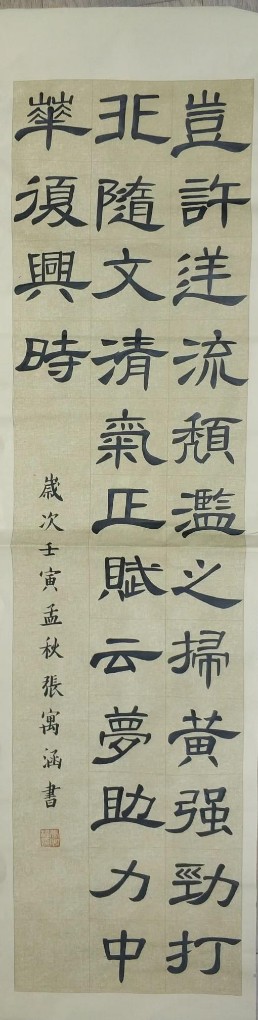 豈許逆流頹濫之掃黃强勁打
非隨文清氣正賦云夢助力中
華復興時
歲次壬寅孟秋張寓涵書